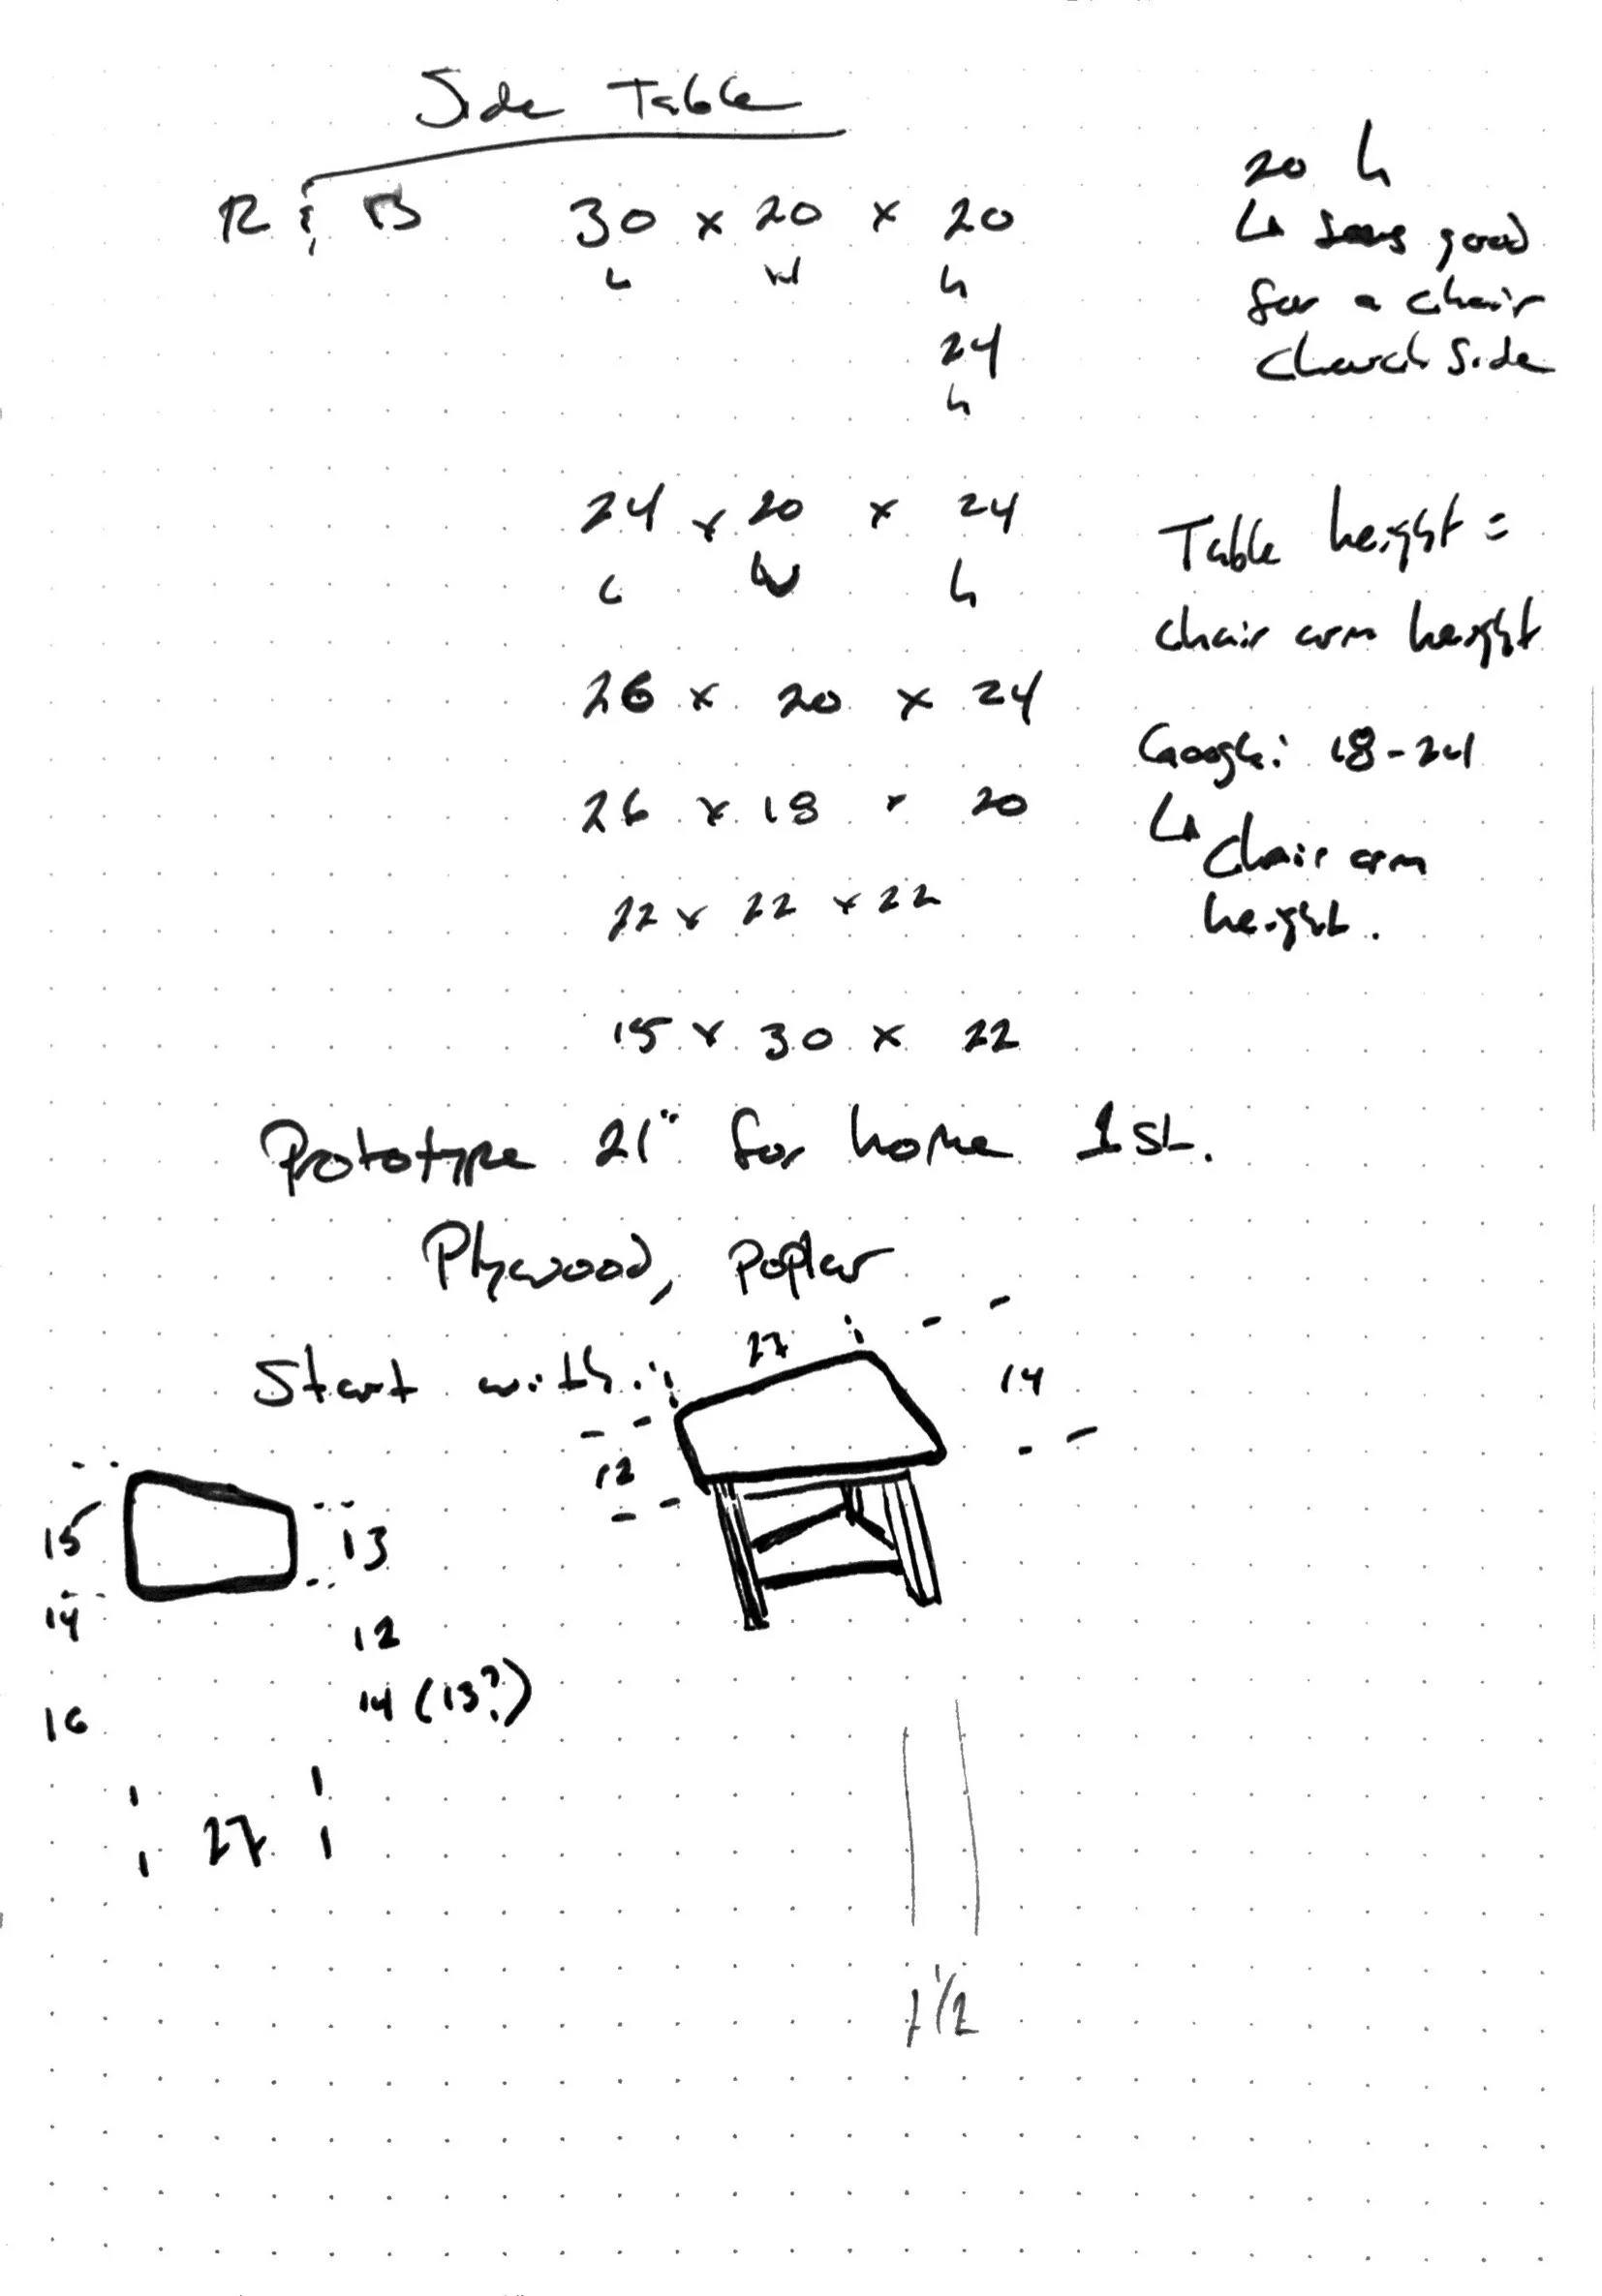 Side Table
R & B 30 x 20 x 20
L W h
24
h
20 h
↳ seems good
for a chair
church side
24 x 20 x 24
L W h
26 x 20 x 24
26 x 18 x 20
22 x 22 x 22
15 x 30 x 22
Table height =
chair arm height
Google: 18-24
↳ Chair arm
height.
Prototype 21" for home 1st.
Plywood, Poplar
Start with:
27
14
12
15
13
14
12
16
14 (13?)
27
1 1/2